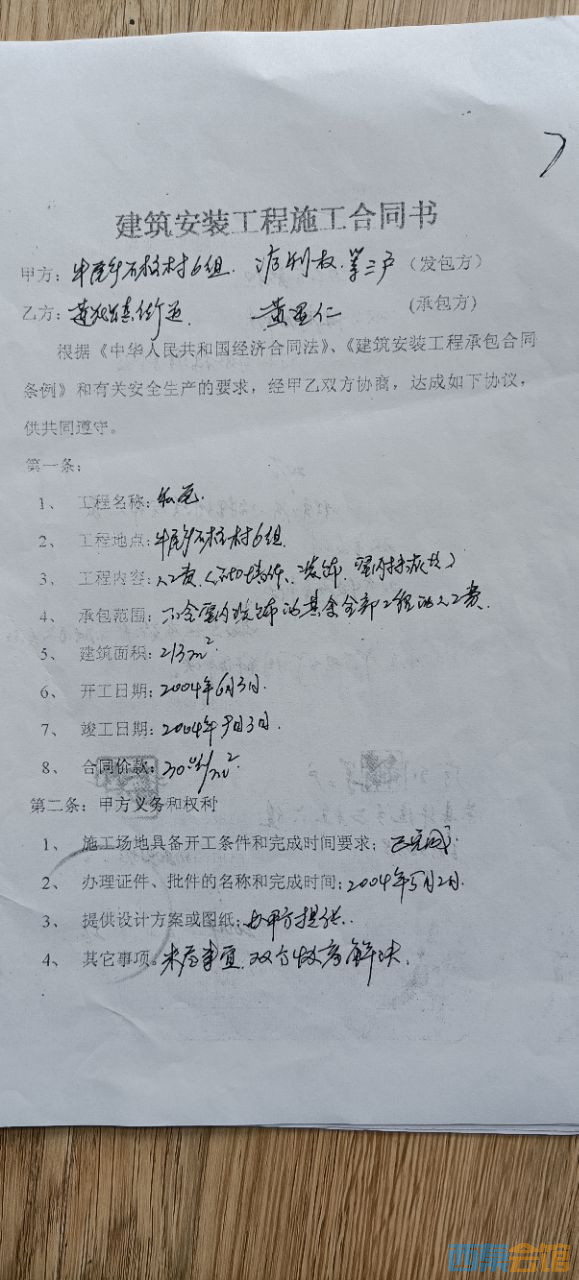 建筑安装工程施工合同书
甲方：石板村6组. 第三户（发包方）
乙方： （承包方）
根据《中华人民共和国经济合同法》、《建筑安装工程承包合同
条例》和有关安全生产的要求，经甲乙双方协商，达成如下协议，
供共同遵守。
第一条：
1、 工程名称：
2、 工程地点：村6组.
3、 工程内容：人工费
4、 承包范围：不含室内装饰的其余全部工程的人工费.
5、 建筑面积：213m².
6、 开工日期：2004年6月3日.
7、 竣工日期：2004年9月3日.
8、 合同价款：/m².
第二条：甲方义务和权利
1、 施工场地具备开工条件和完成时间要求；已完成.
2、 办理证件、批件的名称和完成时间：2004年5月2日.
3、 提供设计方案或图纸：由甲方提供.
4、 其它事项。未尽事宜.双方协商解决.
西东会馆